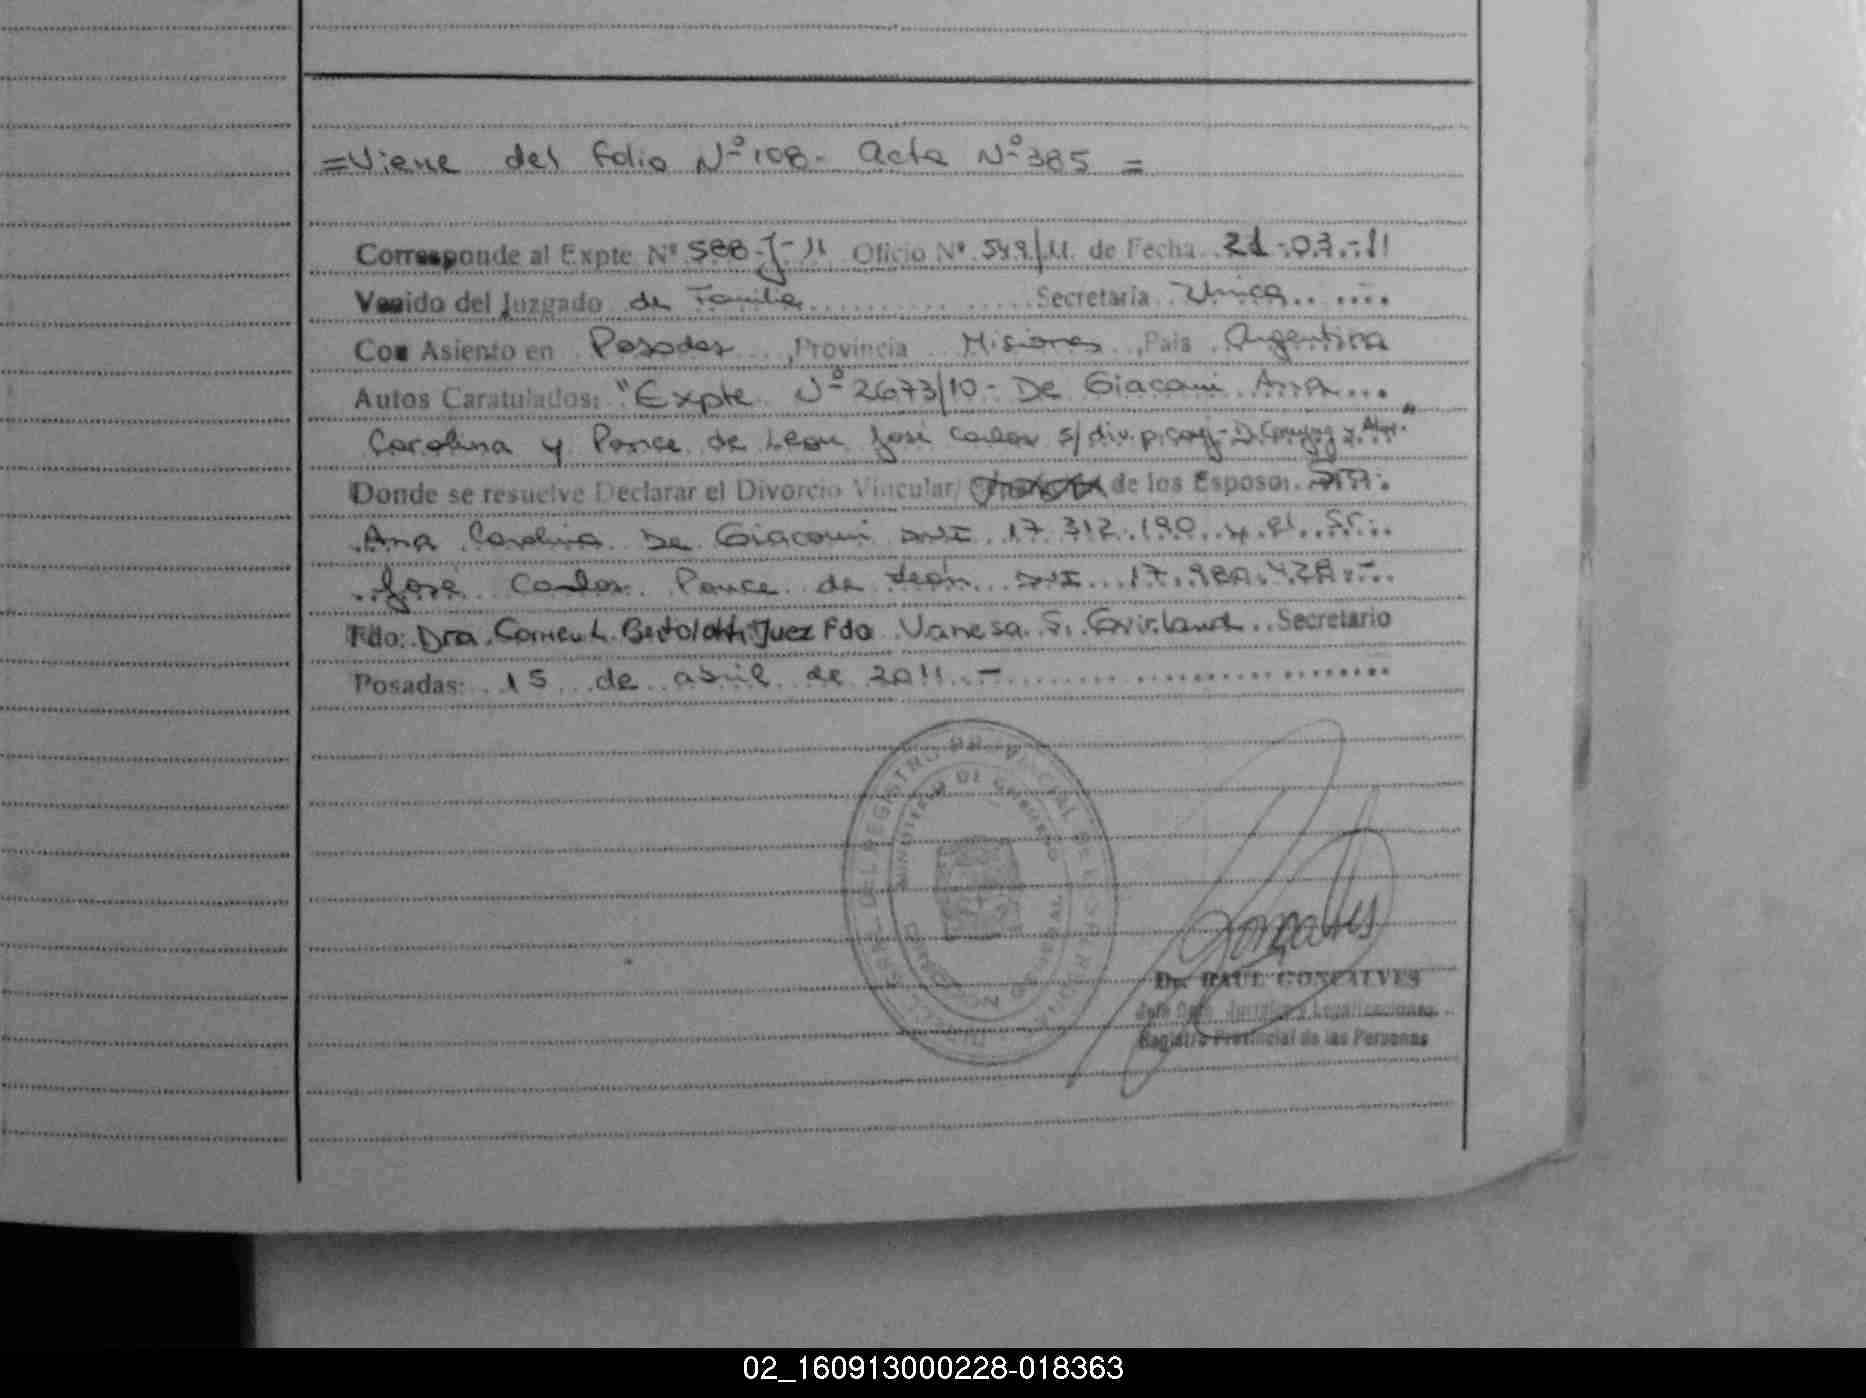 =Viene del folio Nº 108- Acta Nº 385 =
Corresponde al Expte Nº 588-J-11 Oficio Nº 549/11. de Fecha 21-03-11
Venido del Juzgado de Familia Secretaria Unica
Con Asiento en Posadas, Provincia Misiones, Pais Argentina
Autos Caratulados: "Expte Nº 2673/10- De Giacomi Ana
Carolina y Ponce de Leon José Carlos s/ div.
Donde se resuelve Declarar el Divorcio Vincular/ de los Esposos
Ana Carolina De Giacomi DNI 17.312.190 y el Sr.
José Carlos Ponce de León DNI
Fdo: Dra. Juez Fdo Vanesa S. Secretario
Posadas: 15 de abril de 2011.-
DEL REGISTRO PROVINCIAL DE LAS PERSONAS
MINISTERIO DE GOBIERNO
Gonçalves
Dr. RAUL GONCALVES
Jefe Dpto. Jurídico y Legalizaciones
Registro Provincial de las Personas
02_160913000228-018363